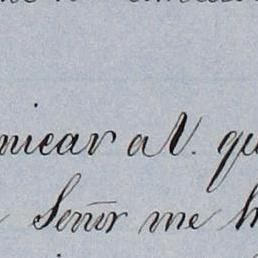 nicar a V. qu
Señr me h